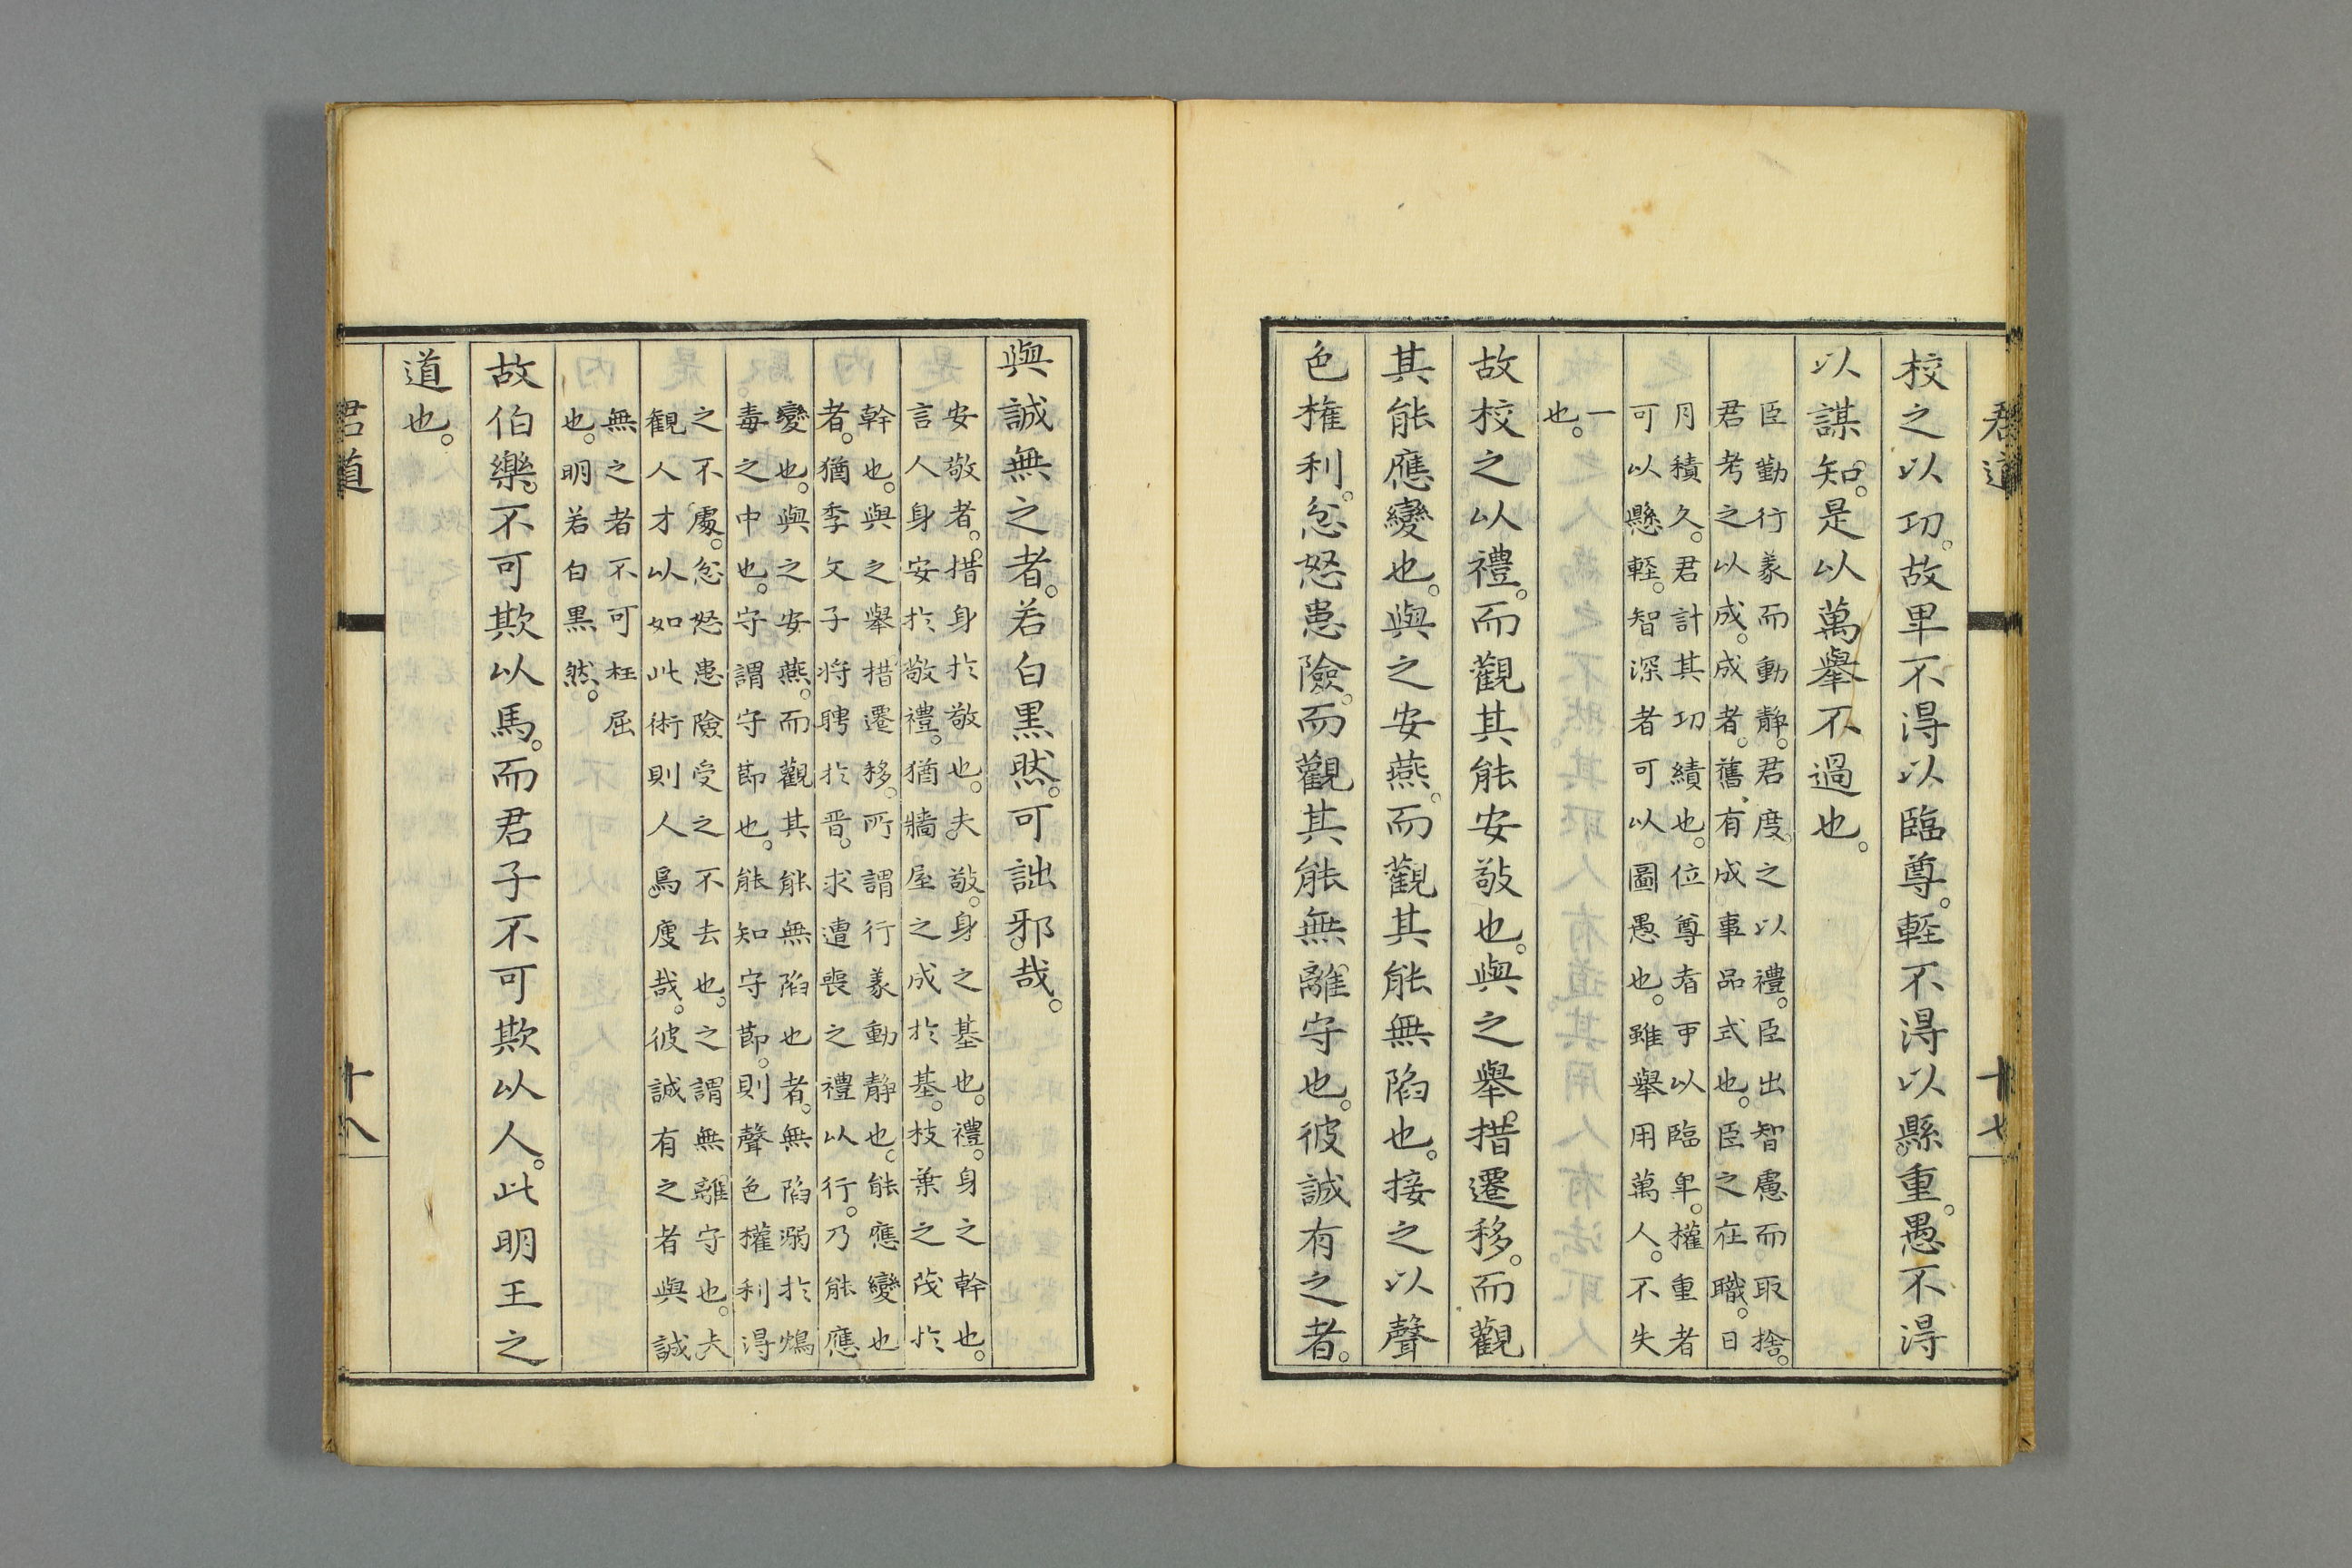 君道
十七
校之以功。故卑不得以臨尊。輕不得以縣重。愚不得
以謀知。是以萬擧不過也。
臣勤行義而動靜。君度之以禮。臣出智慮而取捨。
君考之以成。成者。舊有成事品式也。臣之在職。日
月積久。君計其功績也。位尊者可以臨卑。權重者
可以懸輕。智深者可以圖愚也。雖擧用萬人。不失
一
也。
故校之以禮。而觀其能安敬也。與之擧措遷移。而觀
其能應變也。與之安燕。而觀其能無陷也。接之以聲
色權利。忿怒患險。而觀其能無離守也。彼誠有之者。
與誠無之者。若白黒然。可詘邪哉。
安敬者。措身於敬也。夫敬。身之基也。禮。身之幹也。
言人身安於敬禮。猶牆屋之成於基。枝葉之茂於
幹也。與之擧措遷移。所謂行義動靜也。能應變也
者。猶季文子將聘於晉。求遭喪之禮以行。乃能應
變也。與之安燕。而觀其能無陷也者。無陷溺於鴆
毒之中也。守謂守節也。能知守節。則聲色權利得
之不處。忿怒患險受之不去也。之謂無離守也。夫
觀人才以如此術則人焉廋哉。彼誠有之者與誠
無之者不可枉屈
也。明若白黒然。
故伯樂。不可欺以馬。而君子不可欺以人。此明王之
道也。
君道
十八